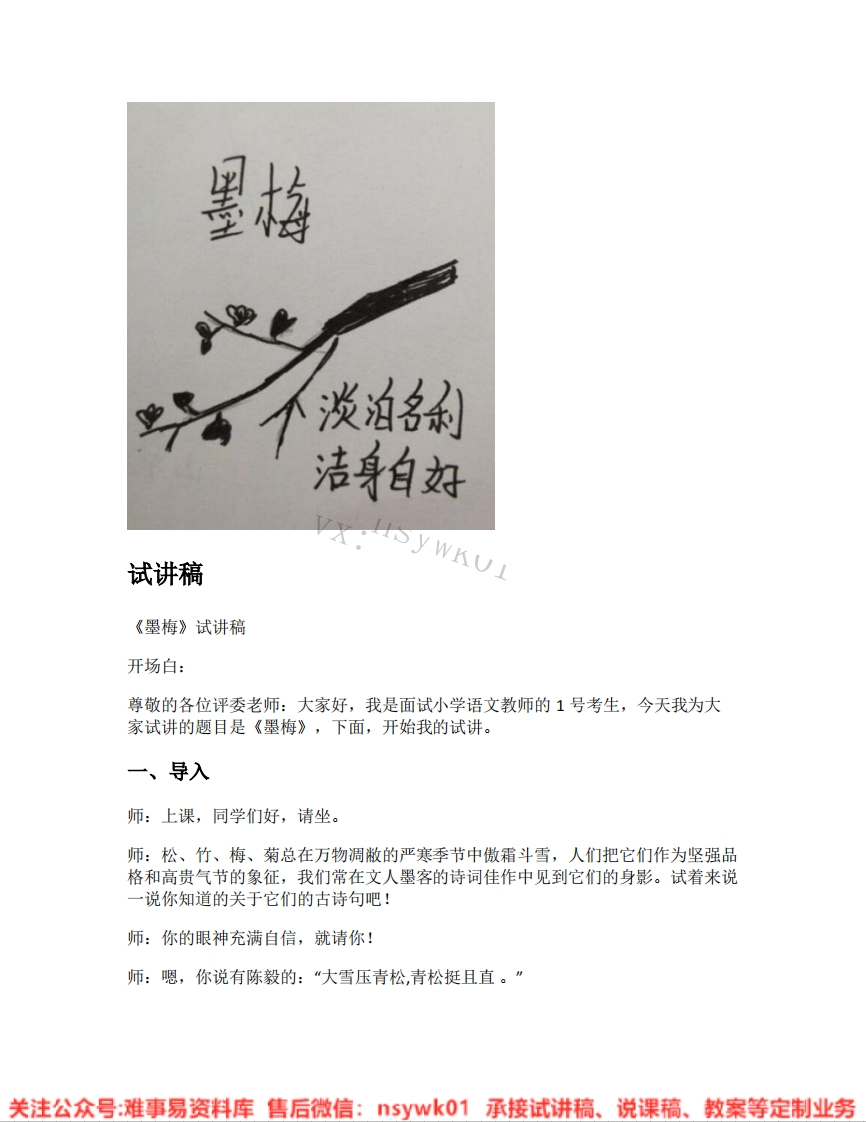 墨梅
淡泊名利
洁身自好
VX:nsywk01
试讲稿
《墨梅》试讲稿
开场白：
尊敬的各位评委老师：大家好，我是面试小学语文教师的 1 号考生，今天我为大
家试讲的题目是《墨梅》，下面，开始我的试讲。
一、导入
师：上课，同学们好，请坐。
师：松、竹、梅、菊总在万物凋敝的严寒季节中傲霜斗雪，人们把它们作为坚强品
格和高贵气节的象征，我们常在文人墨客的诗词佳作中见到它们的身影。试着来说
一说你知道的关于它们的古诗句吧！
师：你的眼神充满自信，就请你！
师：嗯，你说有陈毅的：“大雪压青松,青松挺且直 。”
关注公众号:难事易资料库 售后微信：nsywk01 承接试讲稿、说课稿、教案等定制业务